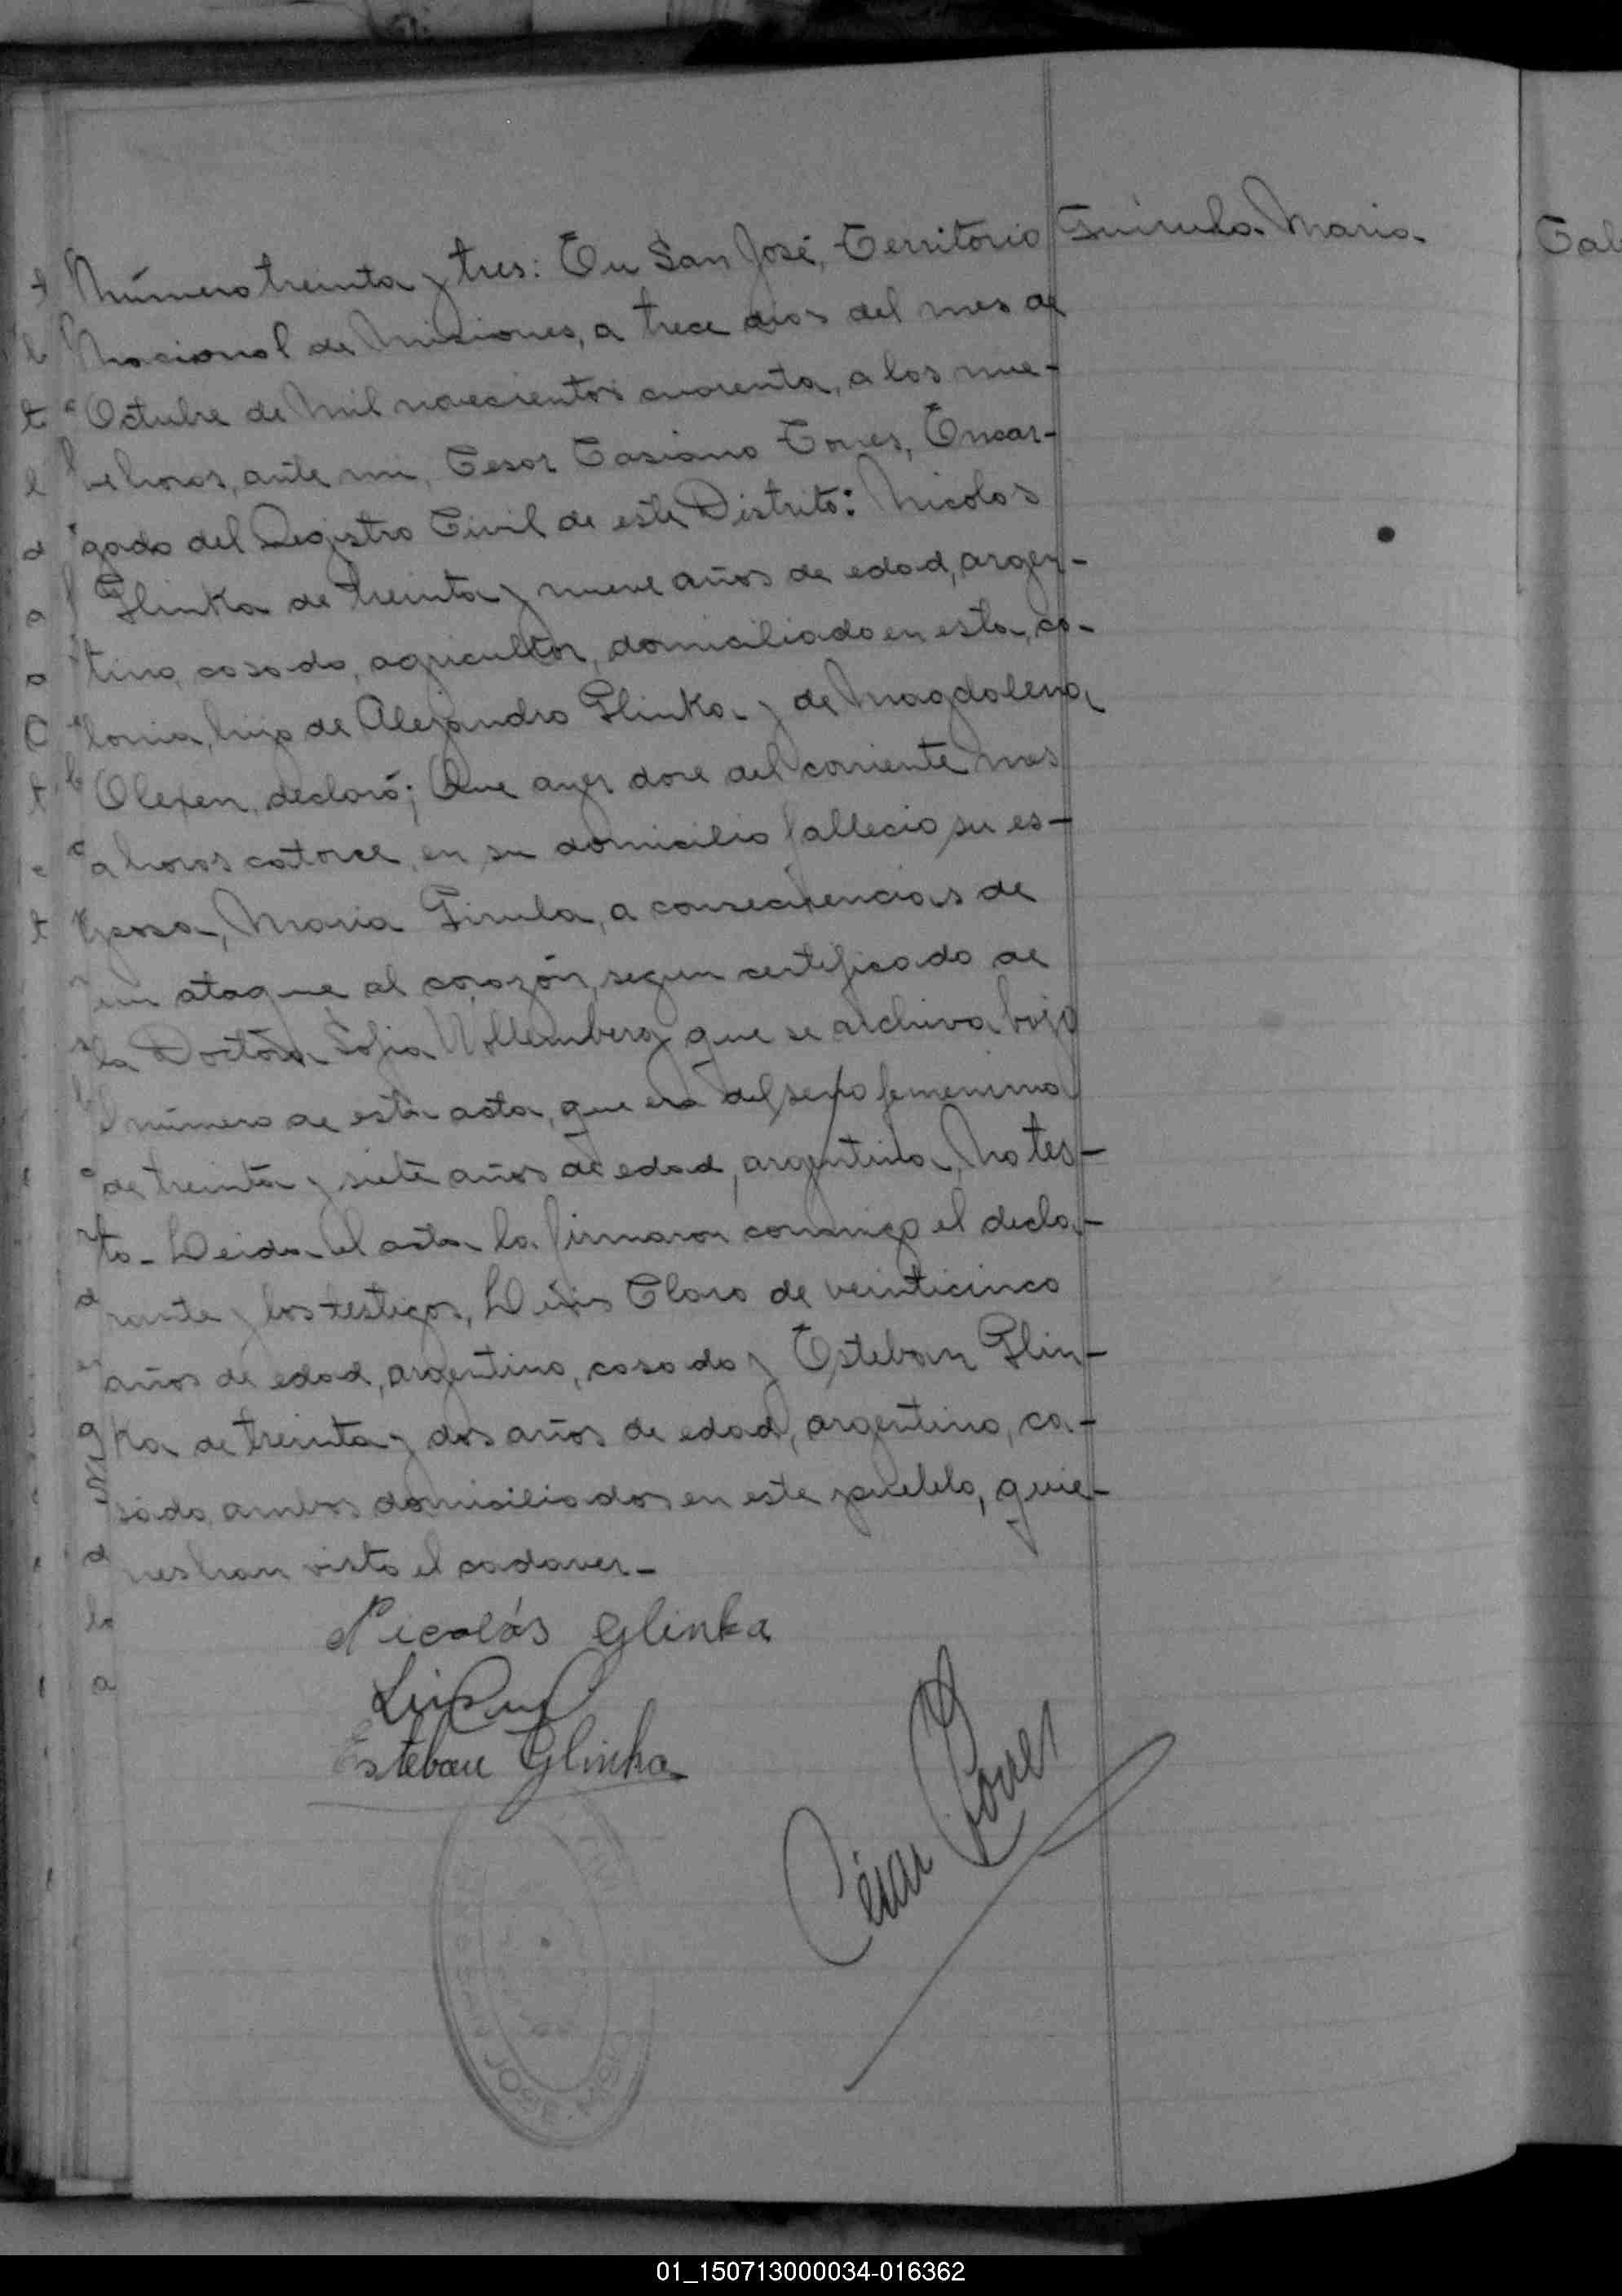 Guirula Maria
Número treinta y tres: En San José, Territorio
Nacional de Misiones, a trece dias del mes de
Octubre de Mil novecientos cuarenta, a los nue-
ve horas, ante mi, Cesar Casiano Torres, Encar-
gado del Registro Civil de este Distrito: Nicolas
Glinka de treinta y nueve años de edad, argen-
tino, casado, agricultor, domiciliado en esta, co-
lonia, hijo de Alejandro Glinka y de Magdalena
Olexen, declaró; Que ayer doce del corriente mes
a horas catorce, en su domicilio fallecio su es-
posa, Maria Girula, a consecuencias de
un ataque al corazón, segun certificado de
la Doctora Sofia Wollemberg que se archiva bajo
el número de esta acta, que era del sexo femenino
de treinta y siete años de edad, argentina, No tes-
to. Leida el acta la firmaron conmigo el decla-
rante y los testigos, Luis Claro de veinticinco
años de edad, argentino, casado y Esteban Glin-
ka de treinta y dos años de edad, argentino, ca-
sado, ambos domiciliados en este pueblo, quie-
nes han visto el cadaver.
Nicolás Glinka
Esteban Glinka
César Torres
SAN JOSE
01_150713000034-016362